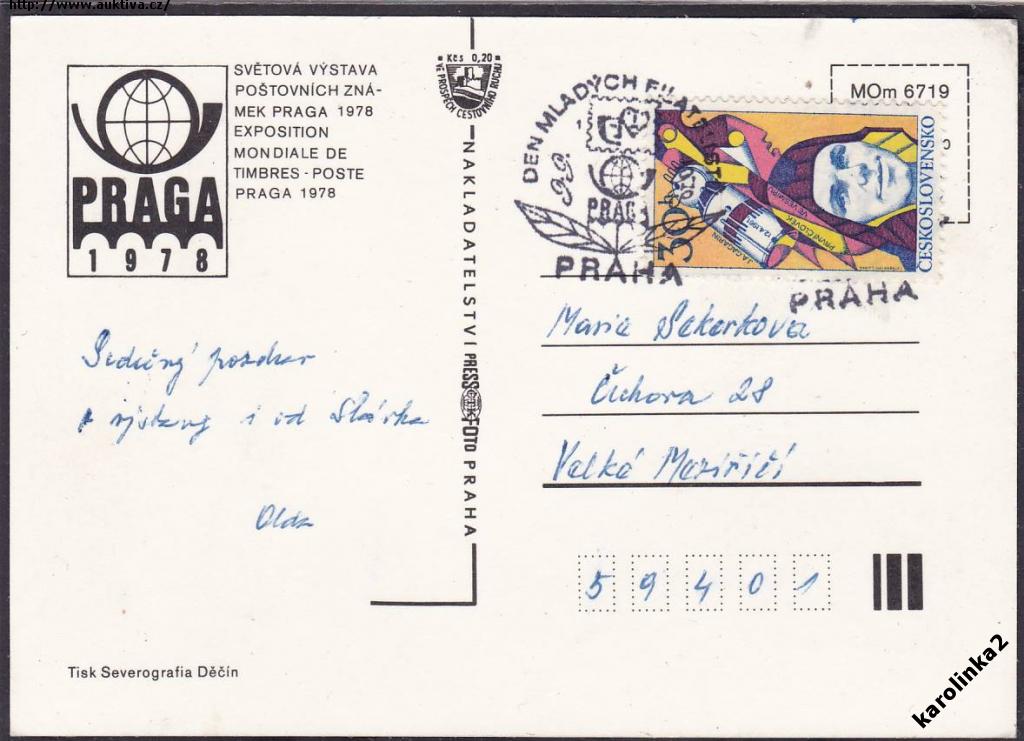 http://www.auktiva.cz/
PRAGA
1978
SVĚTOVÁ VÝSTAVA
POŠTOVNÍCH ZNÁ-
MEK PRAGA 1978
EXPOSITION
MONDIALE DE
TIMBRES - POSTE
PRAGA 1978
Kčs 0,20
VE PROSPĚCH CESTOVNÍHO RUCHU
NAKLADATELSTVÍ PRESSFOTO PRAHA
DEN MLADÝCH FILATELISTŮ
PRAGA
PRAHA
PRAHA
MOm 6719
30h
J.A.GAGARIN
12.4.1961
PRVNÍ ČLOVĚK
VE VESMÍRU
ČESKOSLOVENSKO
Srdečný pozdrav
z výstavy i od Slávka
Olda
Marie Sekerkova
Čichora 28
Velké Meziříčí
59401
Tisk Severografia Děčín
karolinka2